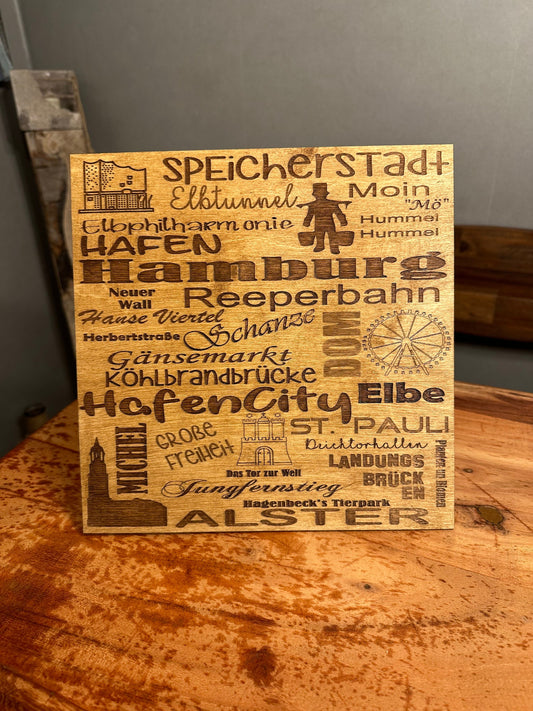 Speicherstadt
Elbtunnel
Moin
"Mö"
Elbphilharmonie
Hummel
Hummel
HAFEN
Hamburg
Neuer
Wall
Reeperbahn
Hanse Viertel
Schanze
Herbertstraße
DOM
Gänsemarkt
Köhlbrandbrücke
HafenCity
Elbe
MICHEL
GROßE
FREIHEIT
ST. PAULI
Deichtorhallen
Planten un Blomen
Das Tor zur Welt
LANDUNGS
BRÜCK
EN
Jungfernstieg
Hagenbeck's Tierpark
ALSTER